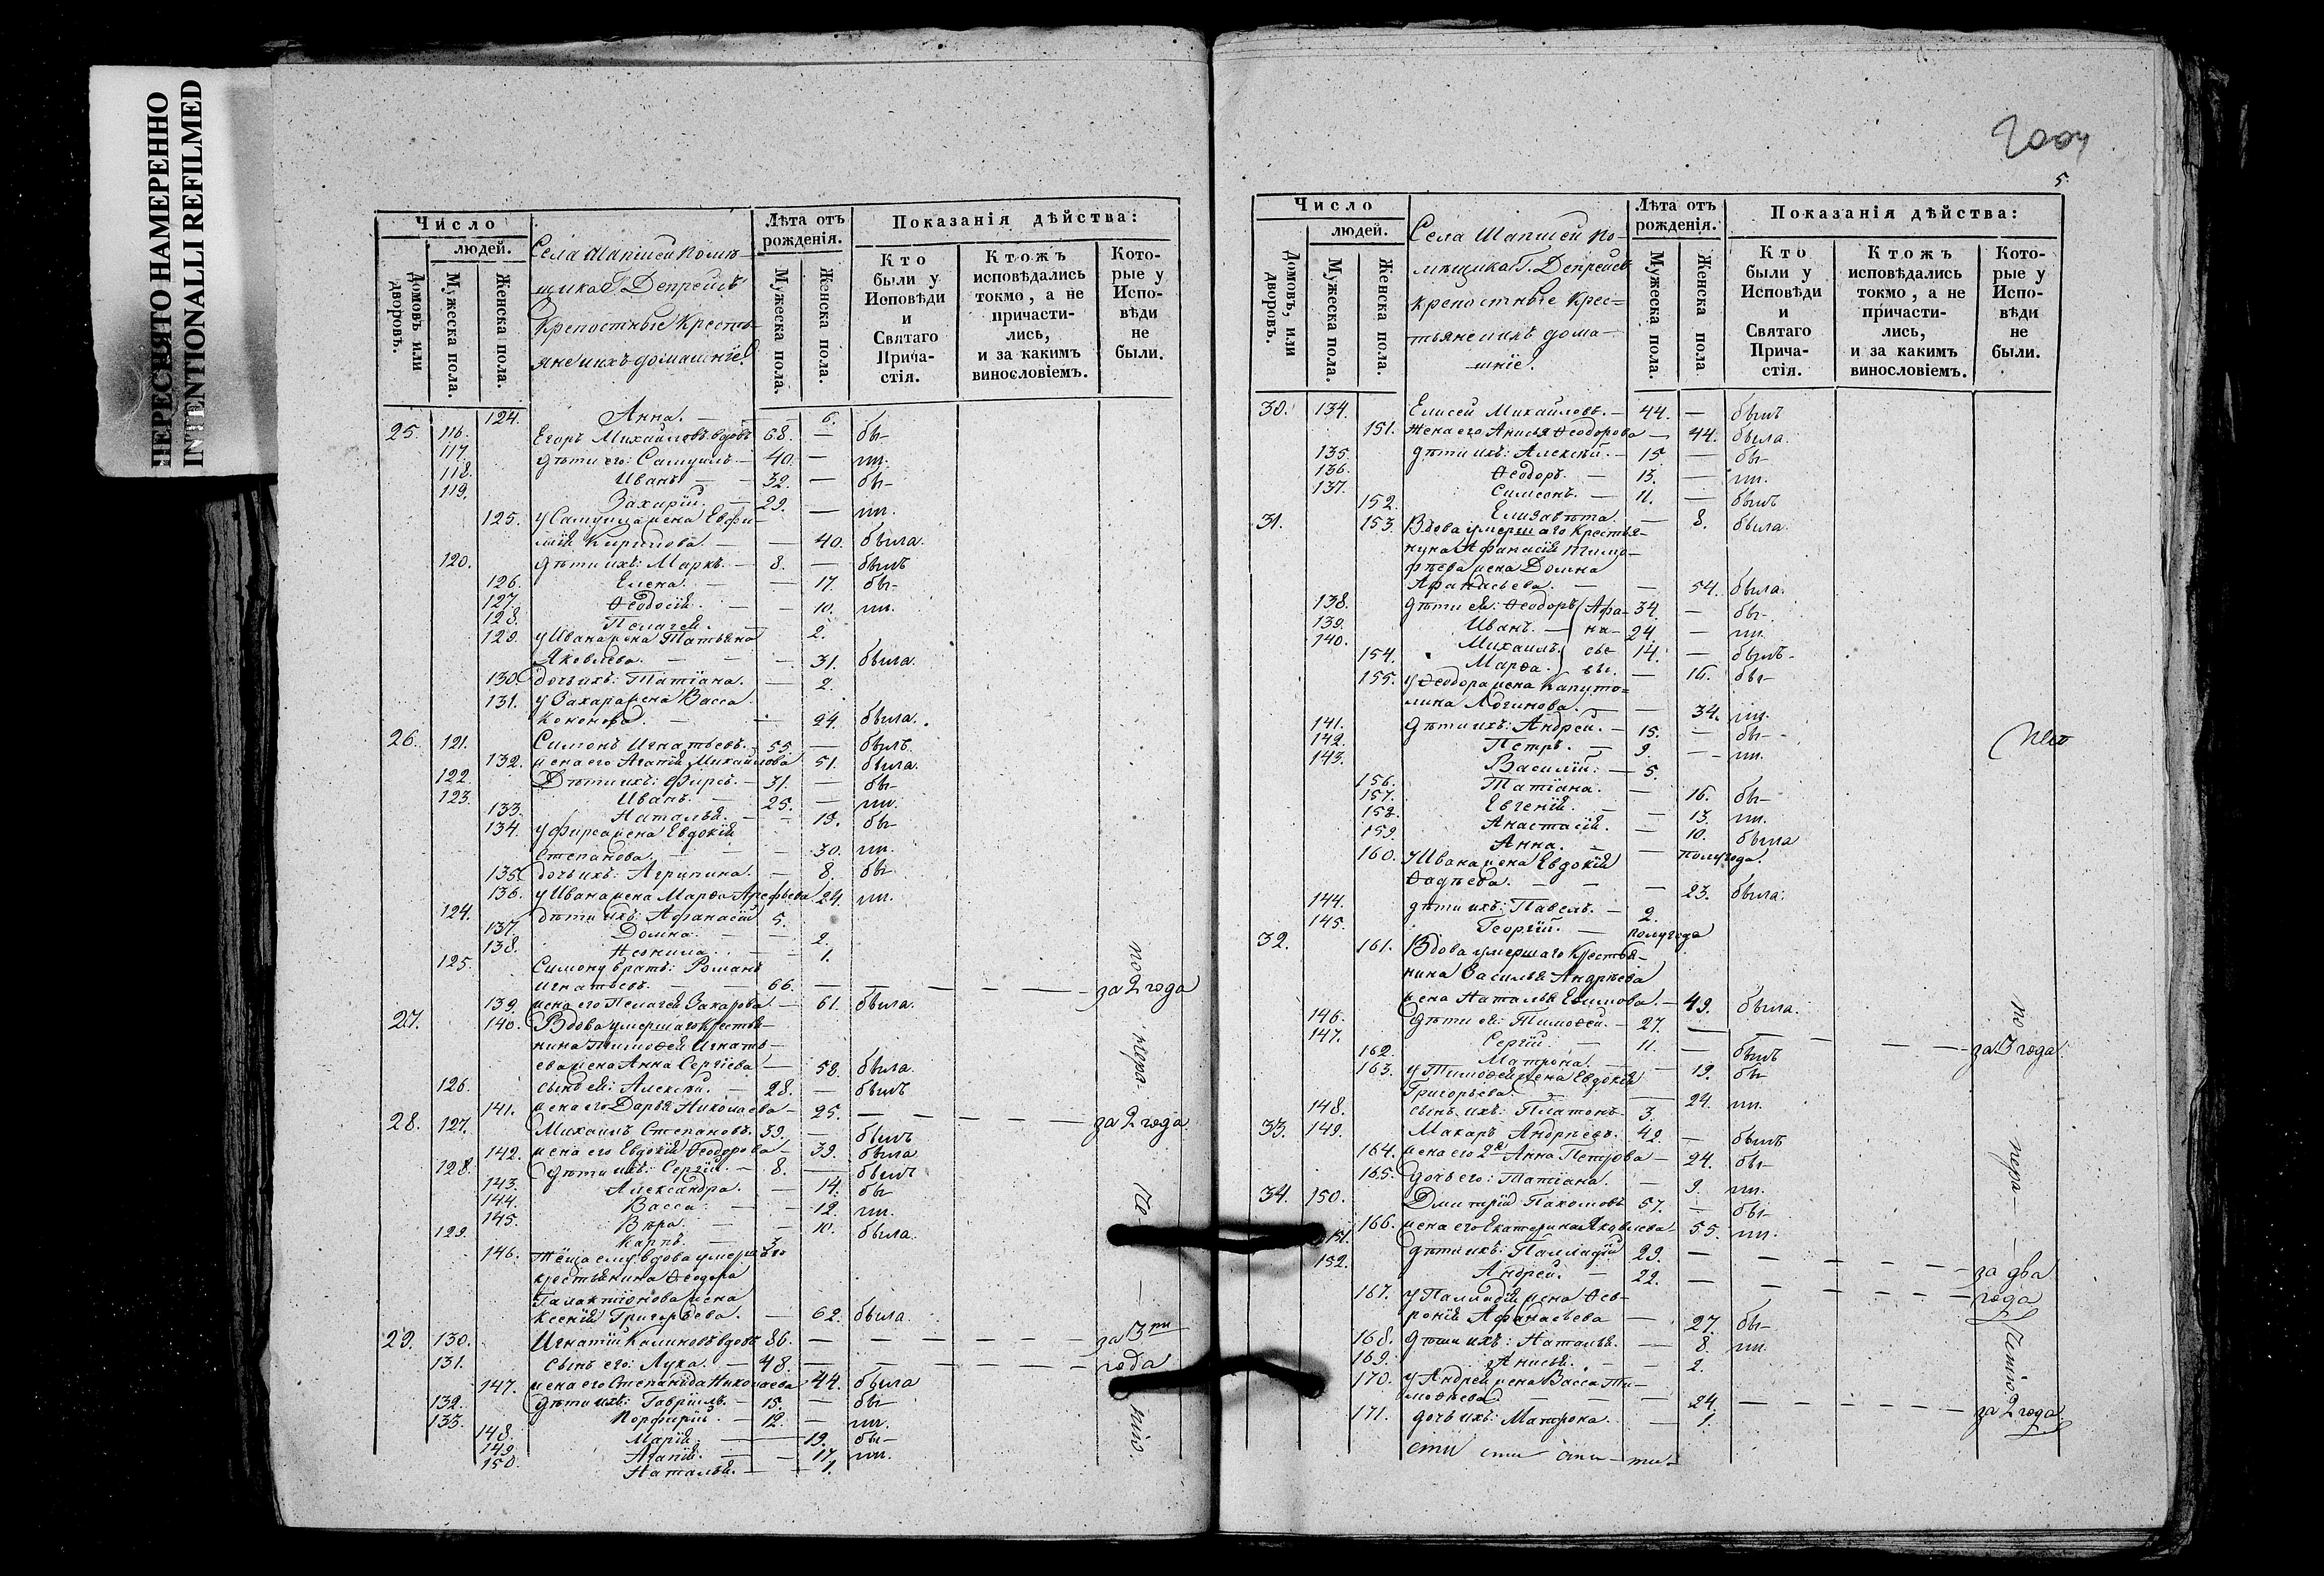 ПЕРЕСНЯТО НАМЕРЕННО
INTENTIONALLI REFILMED
Число
людей.
Домовъ или дворовъ.
Мужеска пола.
Женска пола.
Села Шапшей помѣ-
щика Г. Депрейсъ
Крепостные Кресть-
яне и ихъ домашніе
Лѣта отъ рожденія.
Мужеска пола.
Женска пола.
Показанія дѣйства:
Кто были у Исповѣди и Святаго Прича-стія.
Ктожъ исповѣдались токмо, а не причасти-лись, и за какимъ винословіемъ.
Кото-рые у Испо-вѣди не были.
124. Анна. — — 6.
25. 116. Егоръ Михайловъ вдовъ 68. — бы-
117. дѣти его: Самуилъ — 40. — ли.
118. Иванъ — 32. — бы-
119. Захарій — 29. — ли.
125. у Самуила жена Евфи-
мія Кирилова. — — 40. была.
120. дѣти ихъ: Маркъ. — 8. — былъ
126. Елена. — — 17. бы-
127. Ѳеодосія. — — 10. ли.
128. Пелагея. — 2.
129. у Ивана жена Татьяна
Яковлева. — — 31. была.
130. дочь ихъ: Татіана. — 2.
131. у Захара жена Васса
Кононова. — — 24. была.
26. 121. Симонъ Игнатьевъ. 55. — былъ.
132. жена его Агапія Михайлова 51. была.
122. Дѣти ихъ: Фирсъ. — 31. — бы-
123. Иванъ. — 25. — ли.
133. Наталья. — — 19. бы-
134. у Фирса жена Евдокія
Степанова — — 30. ли.
135. дочь ихъ: Агрипина. — 8. бы-
136. у Ивана жена Марѳа Арефьева 24. ли.
124. дѣти ихъ: Афанасій 5.
137. Домна. — — 2.
138. Неонила. — — 1.
125. Симону братъ: Романъ
Игнатьевъ. — 66. — — — — за 2 года
139. жена его Пелагея Захарова — 61. была.
27. 140. Вдова умершаго крестья-
нина Тимоѳея Игнать-
ева жена Анна Сергіева — 58. была.
126. сынъ ея: Алексѣй. — 28. — былъ
141. жена его Дарья Николаева — 25. — — — — за 2 года.
28. 127. Михаилъ Степановъ. 39. — былъ
142. жена его Евдокія Ѳеодорова — 39. была
128. Дѣти ихъ: Сергій. — 8. — былъ
143. Александра. — 14. бы-
144. Васса. — — 12. ли.
145. Вѣра. — — 10. была.
129. Карпъ. — 3.
146. Тёща ему вдова умершаго
крестьянина Ѳеодора
Галактіонова жена
Ксенія Григорьева. — 62. была.
29. 130. Игнатій Калиновъ вдовъ 86. — — — — — за 3ри
131. сынъ его: Лука. — 48. — — — — — года
147. жена его Степанида Николаева 44. была
132. Дѣти ихъ: Гавріилъ. — 15. — бы-
133. Порфирій. — 12. — ли.
148. Марія. — — 19. бы-
149. Агапія. — — 17. ли.
150. Наталья. — — 1.
5.
Число
людей.
Домовъ, или дворовъ.
Мужеска пола.
Женска пола.
Села Шапшей по-
мѣщика Г. Депрейсъ
крепостные Крес=
тьяне и ихъ дома-
шніе.
Лѣта отъ рожденія.
Мужеска пола.
Женска пола
Показанія дѣйства:
Кто были у Исповѣди и Святаго Прича-стія.
Ктожъ исповѣдались токмо, а не причасти-лись, и за какимъ винословіемъ.
Кото-рые у Испо-вѣди не были.
30. 134. Елисей Михайловъ. — 44. — былъ
151. жена его Анисья Ѳеодорова — 44. была.
135. дѣти ихъ: Алексѣй. — 15. — бы-
136. Ѳеодоръ. — 13. — ли.
137. Симеонъ. — 11. — былъ
152. Елизавета. — 8. была.
31. 153. Вдова умершаго Крестья-
нина Афанасія Тимо-
ѳѣева жена Домна
Афанасьева. — — 54. была.
138. дѣти ея: Ѳеодоръ Афа- 34. — бы-
139. Иванъ. — на- 24. — ли.
140. Михаилъ. сье- 14. — былъ-
154. Марѳа. вы. — 16. бы-
155. у Ѳеодора жена Капито=
лина Логинова. — — 34. ли.
141. Дѣти ихъ: Андрей. — 15. — бы-
142. Петръ. — 9. — ли.
143. Василій. — 5.
156. Татіана. — 16. бы-
157. Евгенія. — — 13. ли.
158. Анастасія. — 10. была
159. Анна. — — полугода.
160. у Ивана жена Евдокія
Ѳадѣева. — — 23. была.
144. дѣти ихъ: Павелъ. — 2.
145. Георгій. — полугода
32. 161. Вдова умершаго Крестья-
нина Василья Андрѣева
жена Наталья Ефимова. — 49. была.
146. Дѣти ея: Тимоѳей. — 27. — — — — за 3 года
147. Сергій. — 11. — былъ
162. Матрона. — 19. бы-
163. у Тимоѳея жена Евдокія
Григорьева. — 24. ли.
148. сынъ ихъ: Платонъ. 3.
33. 149. Макаръ Андрѣевъ. 42. — былъ
164. жена его 2я Анна Петрова — 24. бы-
165. дочь его: Татіана. — 9. ли.
34. 150. Дмитрій Пахомовъ 57. — бы-
166. жена его Екатерина Яковлева 55. ли.
151. дѣти ихъ: Палладій 29. — — — — за два
152. Андрей. — 22. — — — — года
167. у Палладія жена Фев-
ронія Афанасьева — 27 бы-
168. Дѣти ихъ: Наталья. — 8. ли.
169. Анисья. — — 2.
170. у Андрея жена Васса Ти-
моѳѣева — — 24. — — — — за 2 года
171. дочь ихъ: Матрона. — 1.